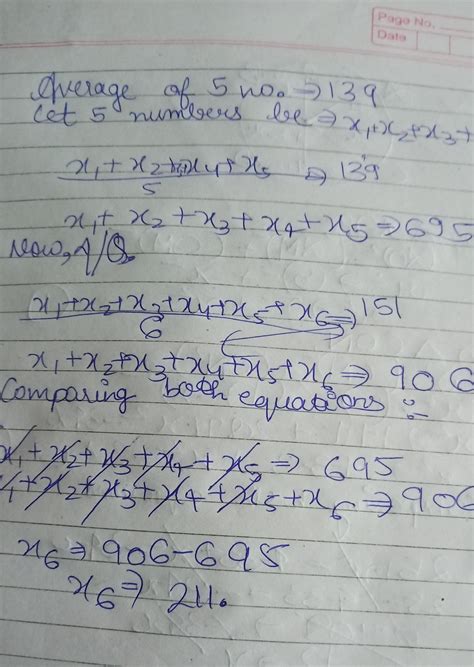 Page No.
Date
Average of 5 no. ⇒ 139
Let 5 numbers be ⇒ x₁+x₂+x₃+
x₁+x₂+x₃+x₄+x₅ ⇒ 139
5
x₁+x₂+x₃+x₄+x₅ ⇒ 695
Now, A/Q,
x₁+x₂+x₃+x₄+x₅+x₆ ⇒ 151
6
x₁+x₂+x₃+x₄+x₅+x₆ ⇒ 906
Comparing both equations :-
x₁+x₂+x₃+x₄+x₅ ⇒ 695
x₁+x₂+x₃+x₄+x₅+x₆ ⇒ 906
x₆ ⇒ 906-695
x₆ ⇒ 211.